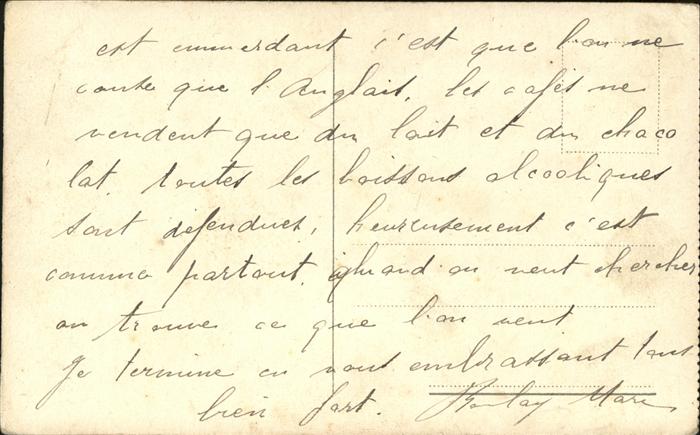 est emmerdant c'est que l'on ne
cause que l'Anglais, les cafés ne
vendent que du lait et du choco
lat. toutes les boissons alcooliques
sont défendues, heureusement c'est
comme partout, quand on veut chercher
on trouve ce que l'on veut
Je termine en vous embrassant tous
bien fort. Marc